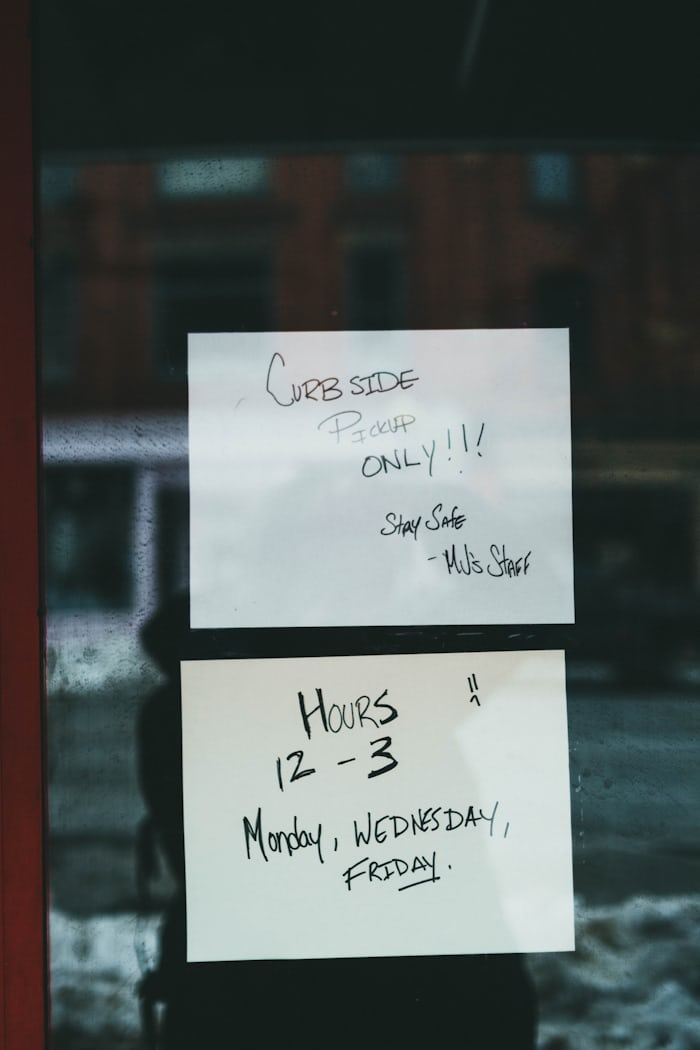 CURBSIDE
PICKUP
ONLY!!!
Stay Safe
- MJ's STAFF
HOURS
12 - 3
Monday, WEDNESDAY,
FRIDAY.